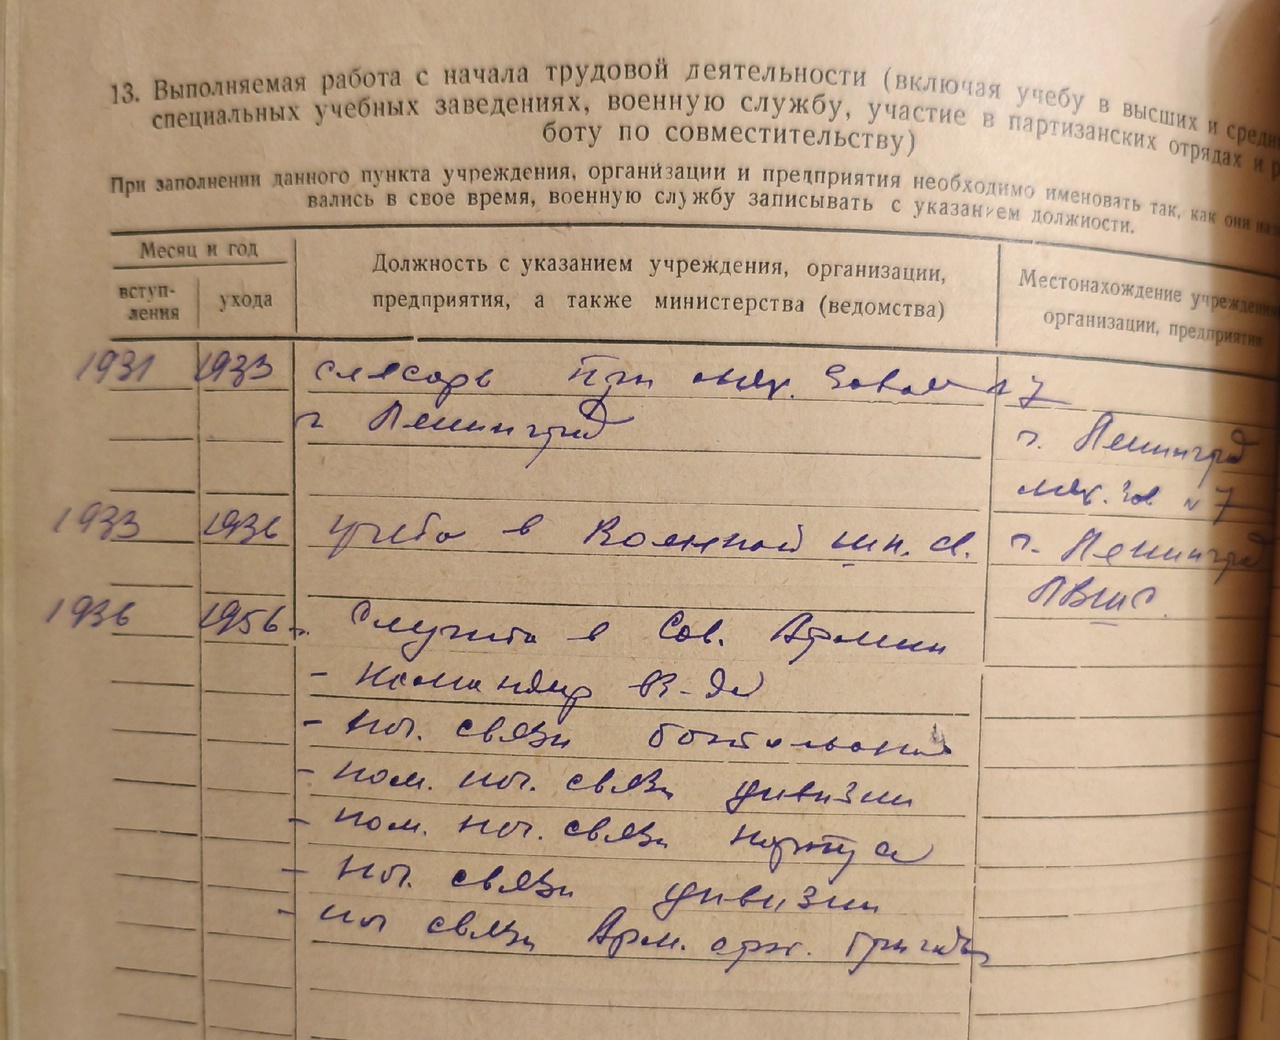 13. Выполняемая работа с начала трудовой деятельности (включая учебу в высших и средн
специальных учебных заведениях, военную службу, участие в партизанских отрядах и р
боту по совместительству)
При заполнении данного пункта учреждения, организации и предприятия необходимо именовать так, как они наз
вались в свое время, военную службу записывать с указанием должности.
Месяц и год
вступ-
ления
ухода
Должность с указанием учреждения, организации,
предприятия, а также министерства (ведомства)
Местонахождение учреждения
организации, предприятия
1931 1933 слесарь при мех. Заводе №7
г Ленинград
г. Ленинград
мех. зав №7
1933 1936 учеба в Военной шк. С.
г. Ленинград
ЛВШС.
1936 1956 г. Служба в Сов. Армии
- командир вз-да
- нач. связи батальона
- пом. нач. связи дивизии
- пом. нач. связи корпуса
- нач. связи дивизии
- нач связи Арм. арт. бригады